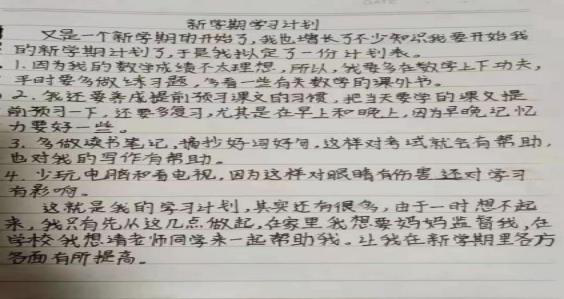 新学期学习计划
又是一个新学期的开始了,我也增长了不少知识我要开始我
的新学期计划了,于是我拟定了一份计划表。
1.因为我的数学成绩不太理想,所以,我要多在数学上下功夫,
平时要多做练习题,多看一些有关数学的课外书。
2.我还要养成提前预习课文的习惯,把当天要学的课文提
前预习一下,还要多复习,尤其是在早上和晚上,因为早晚记忆
力要好一些。
3.多做读书笔记,摘抄好词好句,这样对考试就会有帮助,
也对我的写作有帮助。
4.少玩电脑和看电视,因为这样对眼睛有伤害还对学习
有影响。
这就是我的学习计划,其实还有很多,由于一时想不起
来,我只有先从这几点做起,在家里我想要妈妈监督我,在
学校我想请老师同学来一起帮助我。让我在新学期里各方
各面有所提高。